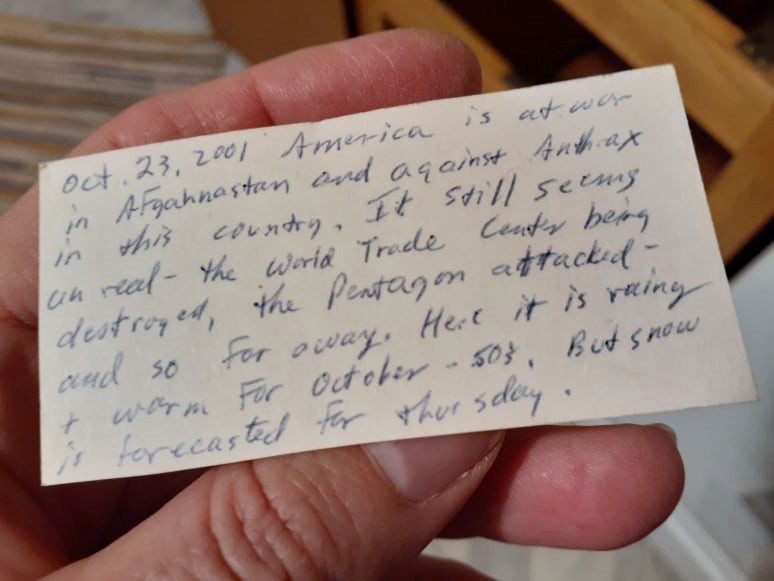 Oct. 23, 2001 America is at war
in Afgahnastan and against Anthrax
in this country. It still seems
un real - the World Trade Center being
destroyed, the Pentagon attacked -
and so far away. Here it is rainy
+ warm for October - 50s. But snow
is forecasted for Thursday.